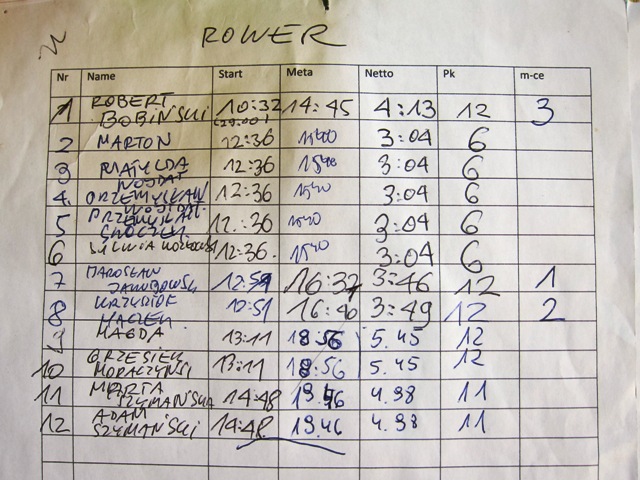 ROWER
Nr Name Start Meta Netto Pk m-ce
1 ROBERT BOBIŃSKI 10:32 14:45 4:13 12 3
2 MARTON 12:36 1540 3:04 6
3 MATYLDA WOJDAT 12:36 1540 3:04 6
4. 12:36 1540 3:04 6
5 12:36 1540 3:04 6
6 12:36 1540 3:04 6
7 JAROSŁAW 12:51 16:37 3:46 12 1
8 12:51 16:40 3:49 12 2
9 MAGDA 13:11 18:56 5.45 12
10 GRZESIEK MORACZYŃSKI 13:11 18:56 5.45 12
11 MARTA SZYMAŃSKA 14:48 19.46 4.98 11
12 ADAM SZYMAŃSKI 14:48 19.46 4.98 11